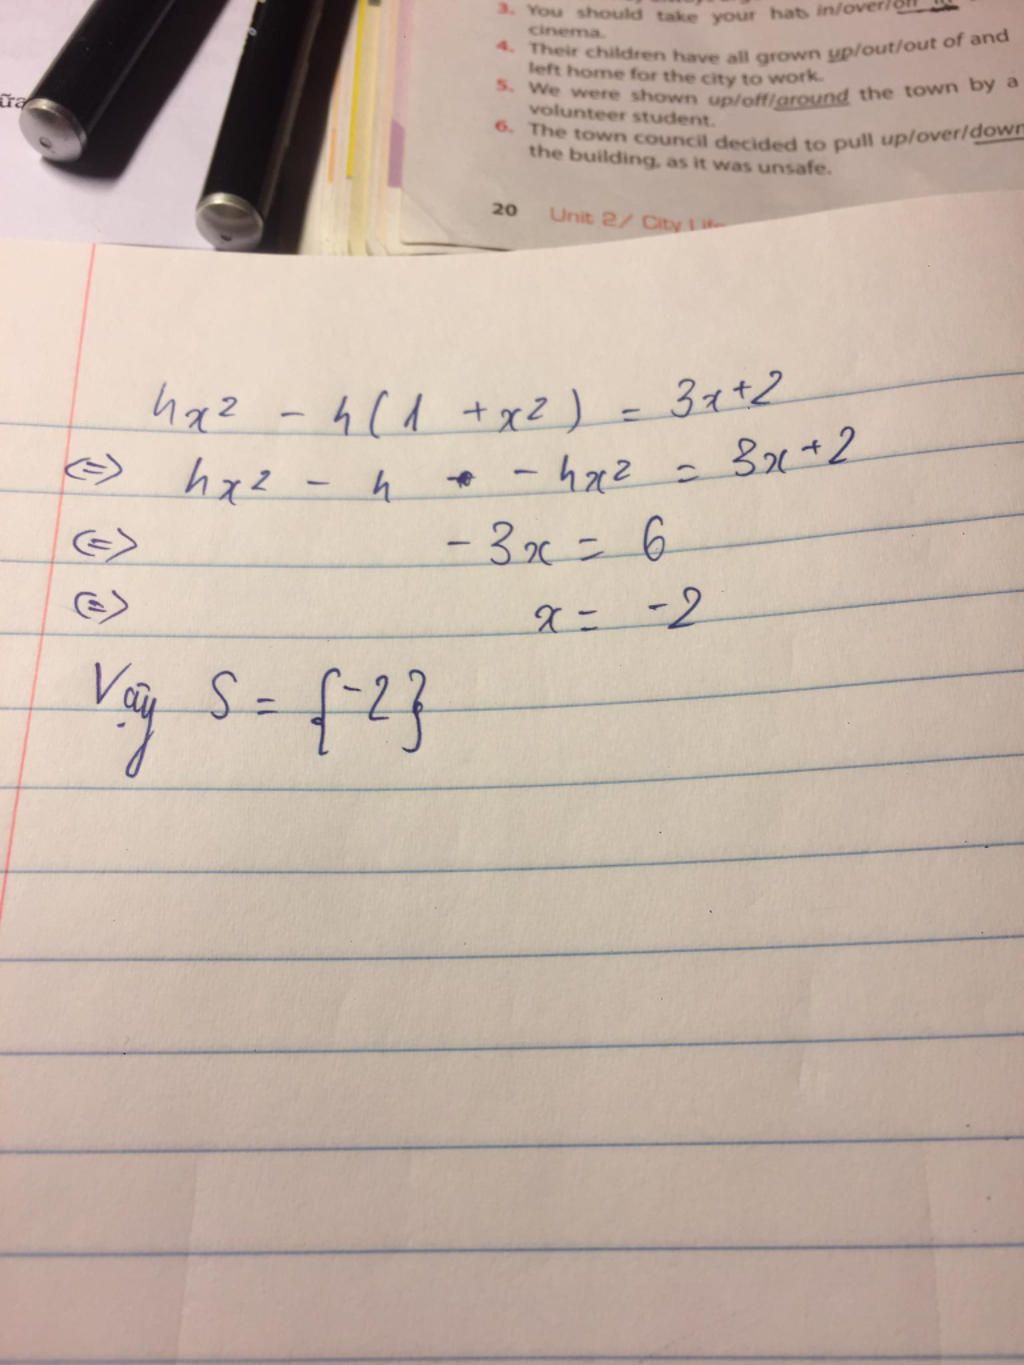 ữa
3. You should take your hats in/over/off
cinema.
4. Their children have all grown up/out/out of and
left home for the city to work.
5. We were shown up/off/around the town by a
volunteer student.
6. The town council decided to pull up/over/down
the building, as it was unsafe.
20 Unit 2/ City Life
4x² - 4(1 + x²) = 3x+2
<=> 4x² - 4 - 4x² = 3x+2
<=> -3x = 6
<=> x = -2
Vậy S = {-2}